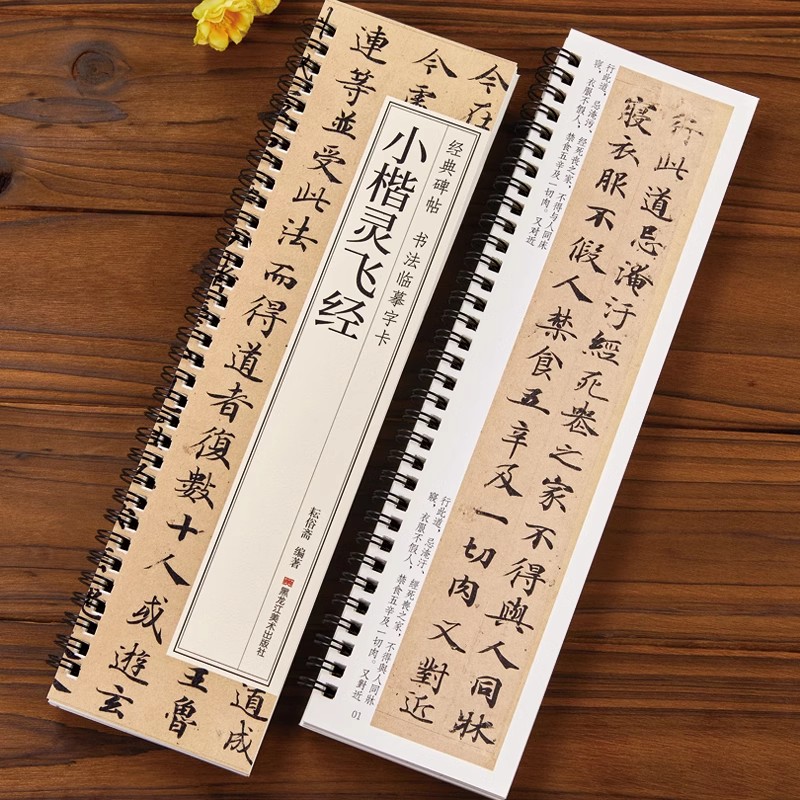 今在
道成
今
王魯
連等並受此法而得道者復數十人或遊玄
经典碑帖 书法临摹字卡
小楷灵飞经
耘俗斋 编著
黑龙江美术出版社
行此道忌淹汙經死喪之家不得與人同牀
寢衣服不假人禁食五辛及一切肉又對近
行此道，忌淹污，经死丧之家，不得与人同床
寝，衣服不假人，禁食五辛及一切肉。又对近
行此道，忌淹汙，經死喪之家，不得與人同牀
寢，衣服不假人，禁食五辛及一切肉。又對近
01